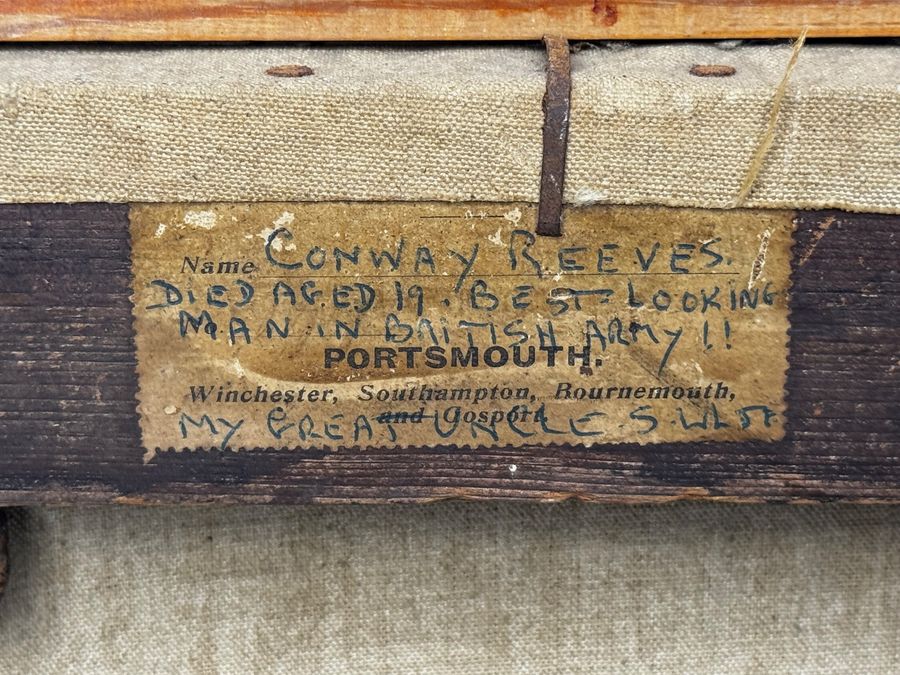 Name CONWAY REEVES.
DIED AGED 19. BEST-LOOKING
MAN IN BRITISH ARMY!!
PORTSMOUTH.
Winchester, Southampton, Bournemouth,
and Gosport
MY GREAT UNCLE. S.